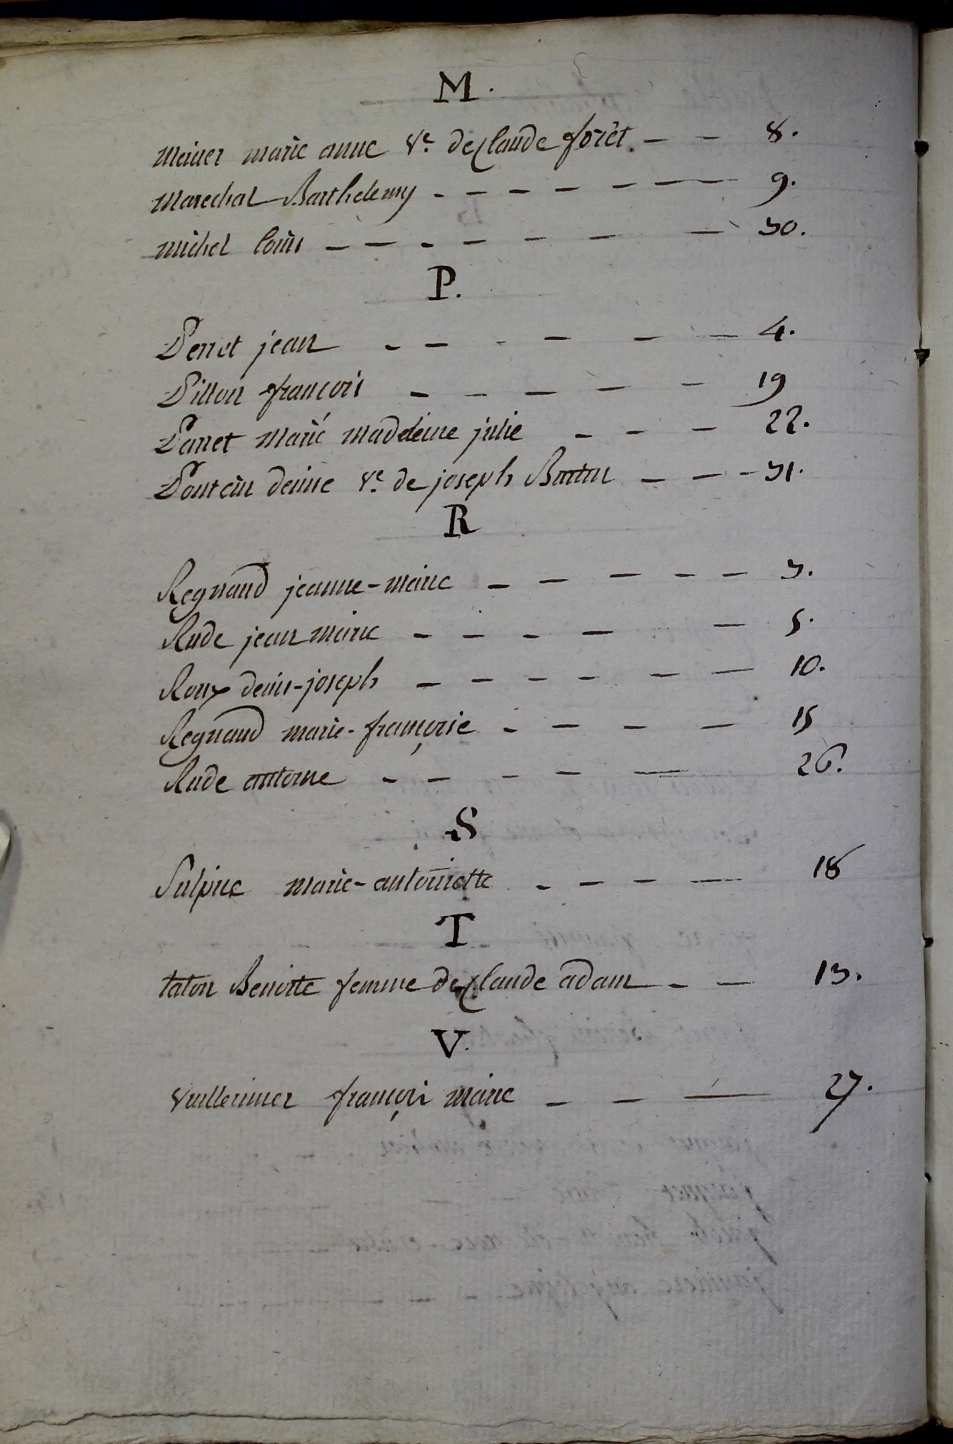 M.
Meiner marie anne Ve de Claude forêt. — — 8.
Marechal Barthelemy - - - - - — — 9.
michel louis — — - - - - — 30.
P.
Perret jean - — - — — — 4.
Pillon françois - - - - — 19
Parret Marie Madeleine julie - - — 22.
Pontcin denise Ve de joseph Breton — — - 31.
R
Regnaud jeanne-marie — — — — — 3.
Rude jean marie - — - — — 5.
Roux denis-joseph — - - - — — 10.
Regnaud marie-françoise - — — — 15
Rude antoine - - - — — 26.
S
Sulpice marie-antoinette - - — — 18
T
taton Benoitte femme de Claude adam - — 13.
V.
Vuillerimer françois marie — — — 27.